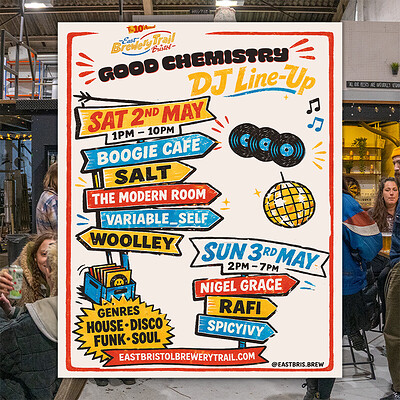 East
Brewery Trail
Bristol
GOOD CHEMISTRY
DJ Line-Up
SAT 2ND MAY
1PM - 10PM
BOOGIE CAFÉ
SALT
THE MODERN ROOM
VARIABLE_SELF
WOOLLEY
SUN 3RD MAY
2PM - 7PM
NIGEL GRACE
RAFI
SPICYIVY
GENRES
HOUSE • DISCO
FUNK • SOUL
EASTBRISTOLBREWERYTRAIL.COM
@EASTBRIS.BREW